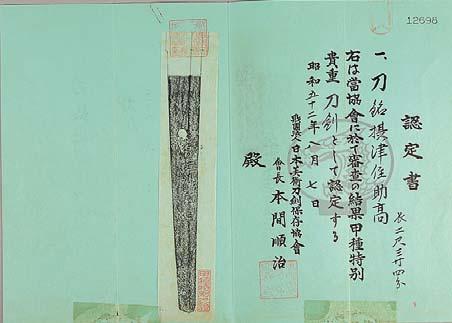 12698
認定書
一、刀 銘 摂津住助高
長二尺三寸四分
右は當協會に於て審査の結果甲種特別
貴重刀剣として認定する
昭和五十二年八月七日
財團法人日本美術刀剣保存協會
會長 本間順治
殿